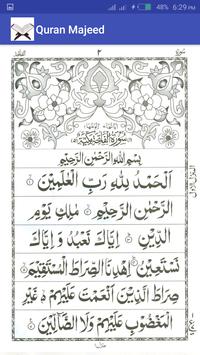 6:29 PM
Quran Majeed
٢
سُورَةُ الْفَاتِحَةِ مَكِّيَّةٌ
بِسْمِ اللهِ الرَّحْمٰنِ الرَّحِيْمِ
اَلْحَمْدُ لِلّٰهِ رَبِّ الْعٰلَمِيْنَ
الرَّحْمٰنِ الرَّحِيْمِ مٰلِكِ يَوْمِ
الدِّيْنِ اِيَّاكَ نَعْبُدُ وَ اِيَّاكَ
نَسْتَعِيْنُ اِهْدِنَا الصِّرَاطَ الْمُسْتَقِيْمَ
صِرَاطَ الَّذِيْنَ اَنْعَمْتَ عَلَيْهِمْ غَيْرِ
الْمَغْضُوْبِ عَلَيْهِمْ وَلَا الضَّآلِّيْنَ